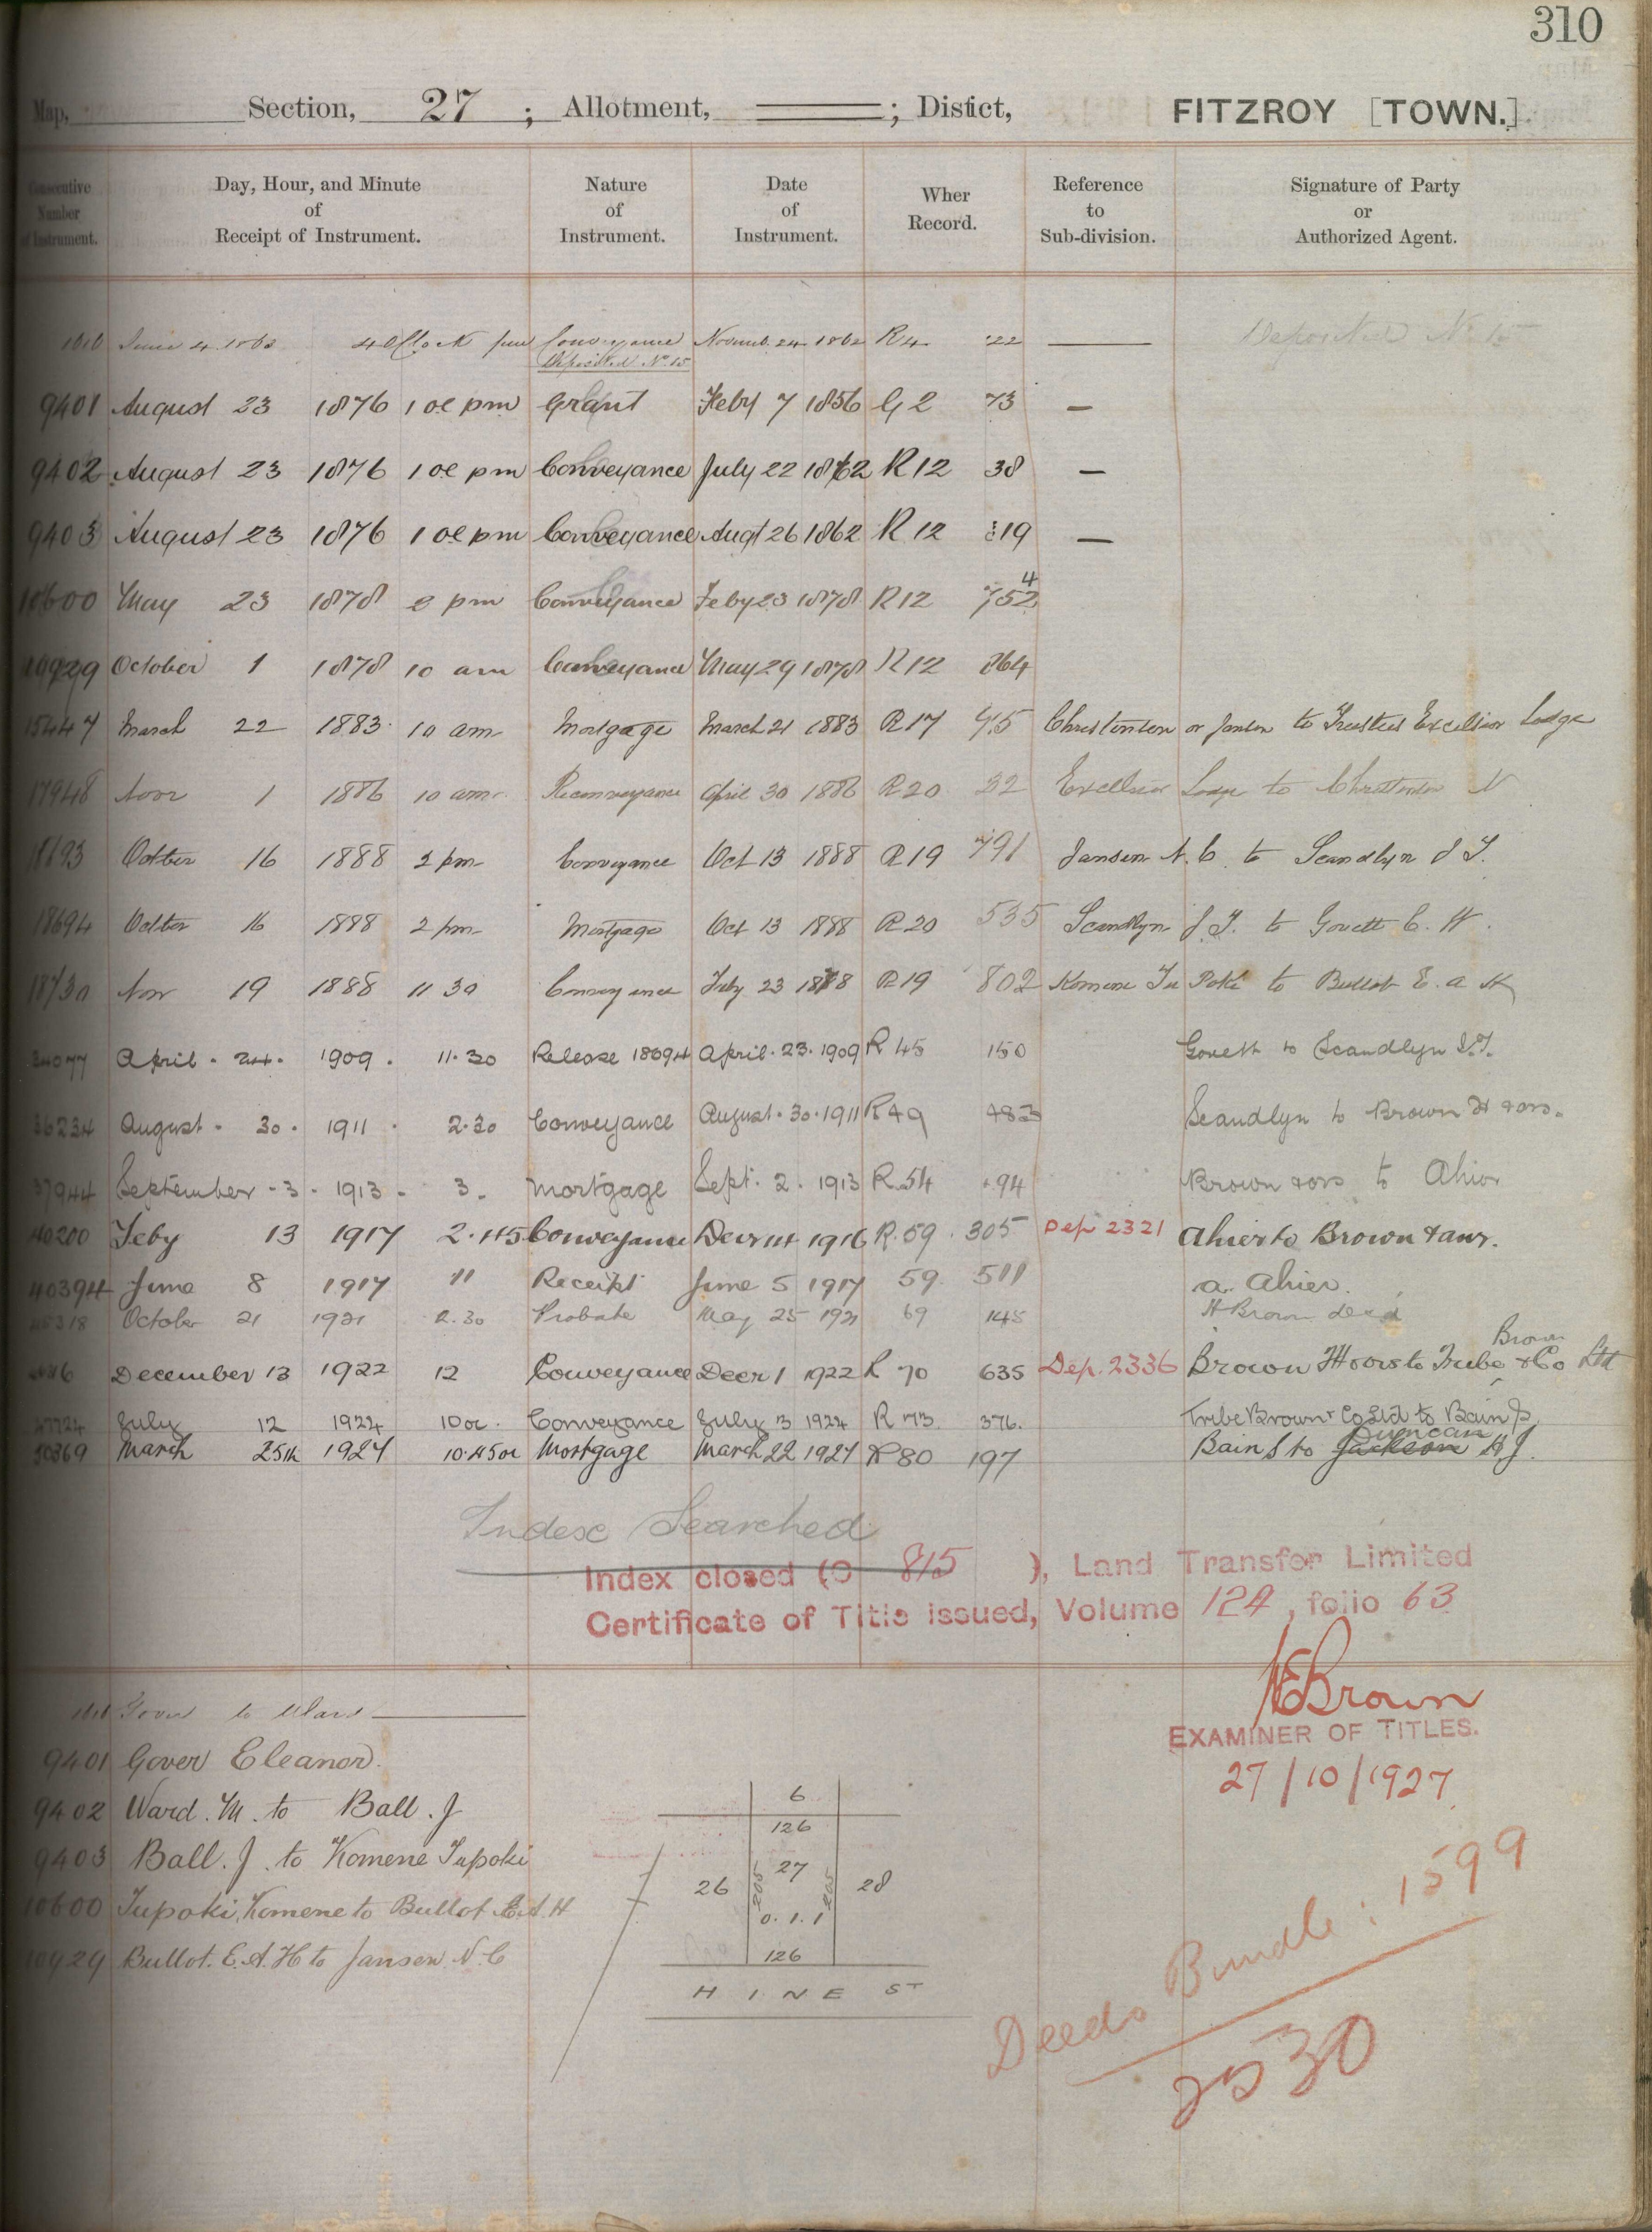 310
Map, Section, 27 ; Allotment, ; Distict, FITZROY [TOWN.]
Consecutive Number of Instrument. Day, Hour, and Minute of Receipt of Instrument. Nature of Instrument. Date of Instrument. Wher Record. Reference to Sub-division. Signature of Party or Authorized Agent.
June 4 1863 4 OClock Conveyance Novemb. 24 1862 R4 22 Deposited No 15
Deposited No 15
9401 August 23 1876 1 oc pm Grant Feby 7 1856 G 2 73 —
9402 August 23 1876 1 oc pm Conveyance July 22 1862 R 12 38 —
9403 August 23 1876 1 oc pm Conveyance Augt 26 1862 R 12 319 —
10600 May 23 1878 2 pm Conveyance Feby 23 1878 R 12 752 4
October 1 1878 10 am Conveyance May 29 1878 R 12 864
15447 March 22 1883 10 am Mortgage March 21 1883 R 17 Trustees Excelsior Lodge
17948 Novr 1 1886 10 am Reconveyance April 30 1886 R 20 Excelsior Lodge to
18693 October 16 1888 2 pm Conveyance Oct 13 1888 R 19 791 Jansen N. C. to Scandlyn J T.
18694 October 16 1888 2 pm Mortgage Oct 13 1888 R 20 535 Scandlyn J. T. to Govett C. W.
18730 Nov 19 1888 11 30 Conveyance Feby 23 1878 R 19 802 Komene Tu Poki to Bullot E. A H
April . 24 . 1909 . 11.30 Release 18694 April . 23 . 1909 R 45 150 Govett to Scandlyn J.T.
36234 August . 30 . 1911 . 2.30 Conveyance August . 30 . 1911 R 49 483 Scandlyn to Brown H & ors.
37944 September - 3 - 1913 - 3. Mortgage Sept. 2. 1913 R 54 94 Brown & ors to Ahier
40200 Feby 13 1917 2.45 Conveyance Decr 14 1916 R. 59. 305 Dep 2321 Ahier to Brown & anr.
40394 June 8 1917 11 Receipt June 5 1917 59. 511 A. Ahier.
October 21 1921 2.30 Probate May 25 1921 69 145 H Brown decd
December 13 1922 12 Conveyance Decr 1 1922 R 70 635 Dep. 2336 Brown H & ors to Tribe Brown & Co Ltd
July 12 1924 10 oc. Conveyance July 3 1924 R 73. 376. Tribe Brown & Co Ltd to Bain J
March 25th 1927 10.45 oc Mortgage March 22 1927 R 80 197 Bain J to Jackson Duncan H J.
Index Searched
Index closed (O 815 ), Land Transfer Limited
Certificate of Title issued, Volume 124, folio 63
Brown
EXAMINER OF TITLES.
27/10/1927
Gover to Ward
9401 Gover Eleanor.
9402 Ward. M. to Ball. J
9403 Ball. J. to Komene Tupoki
10600 Tupoki, Komene to Bullot E. A. H
Bullot. E. A. H to Jansen N. C
6
126
26 205 27 205 28
0. 1. 1
126
HINE ST
Deeds Bundle: 1599
2530